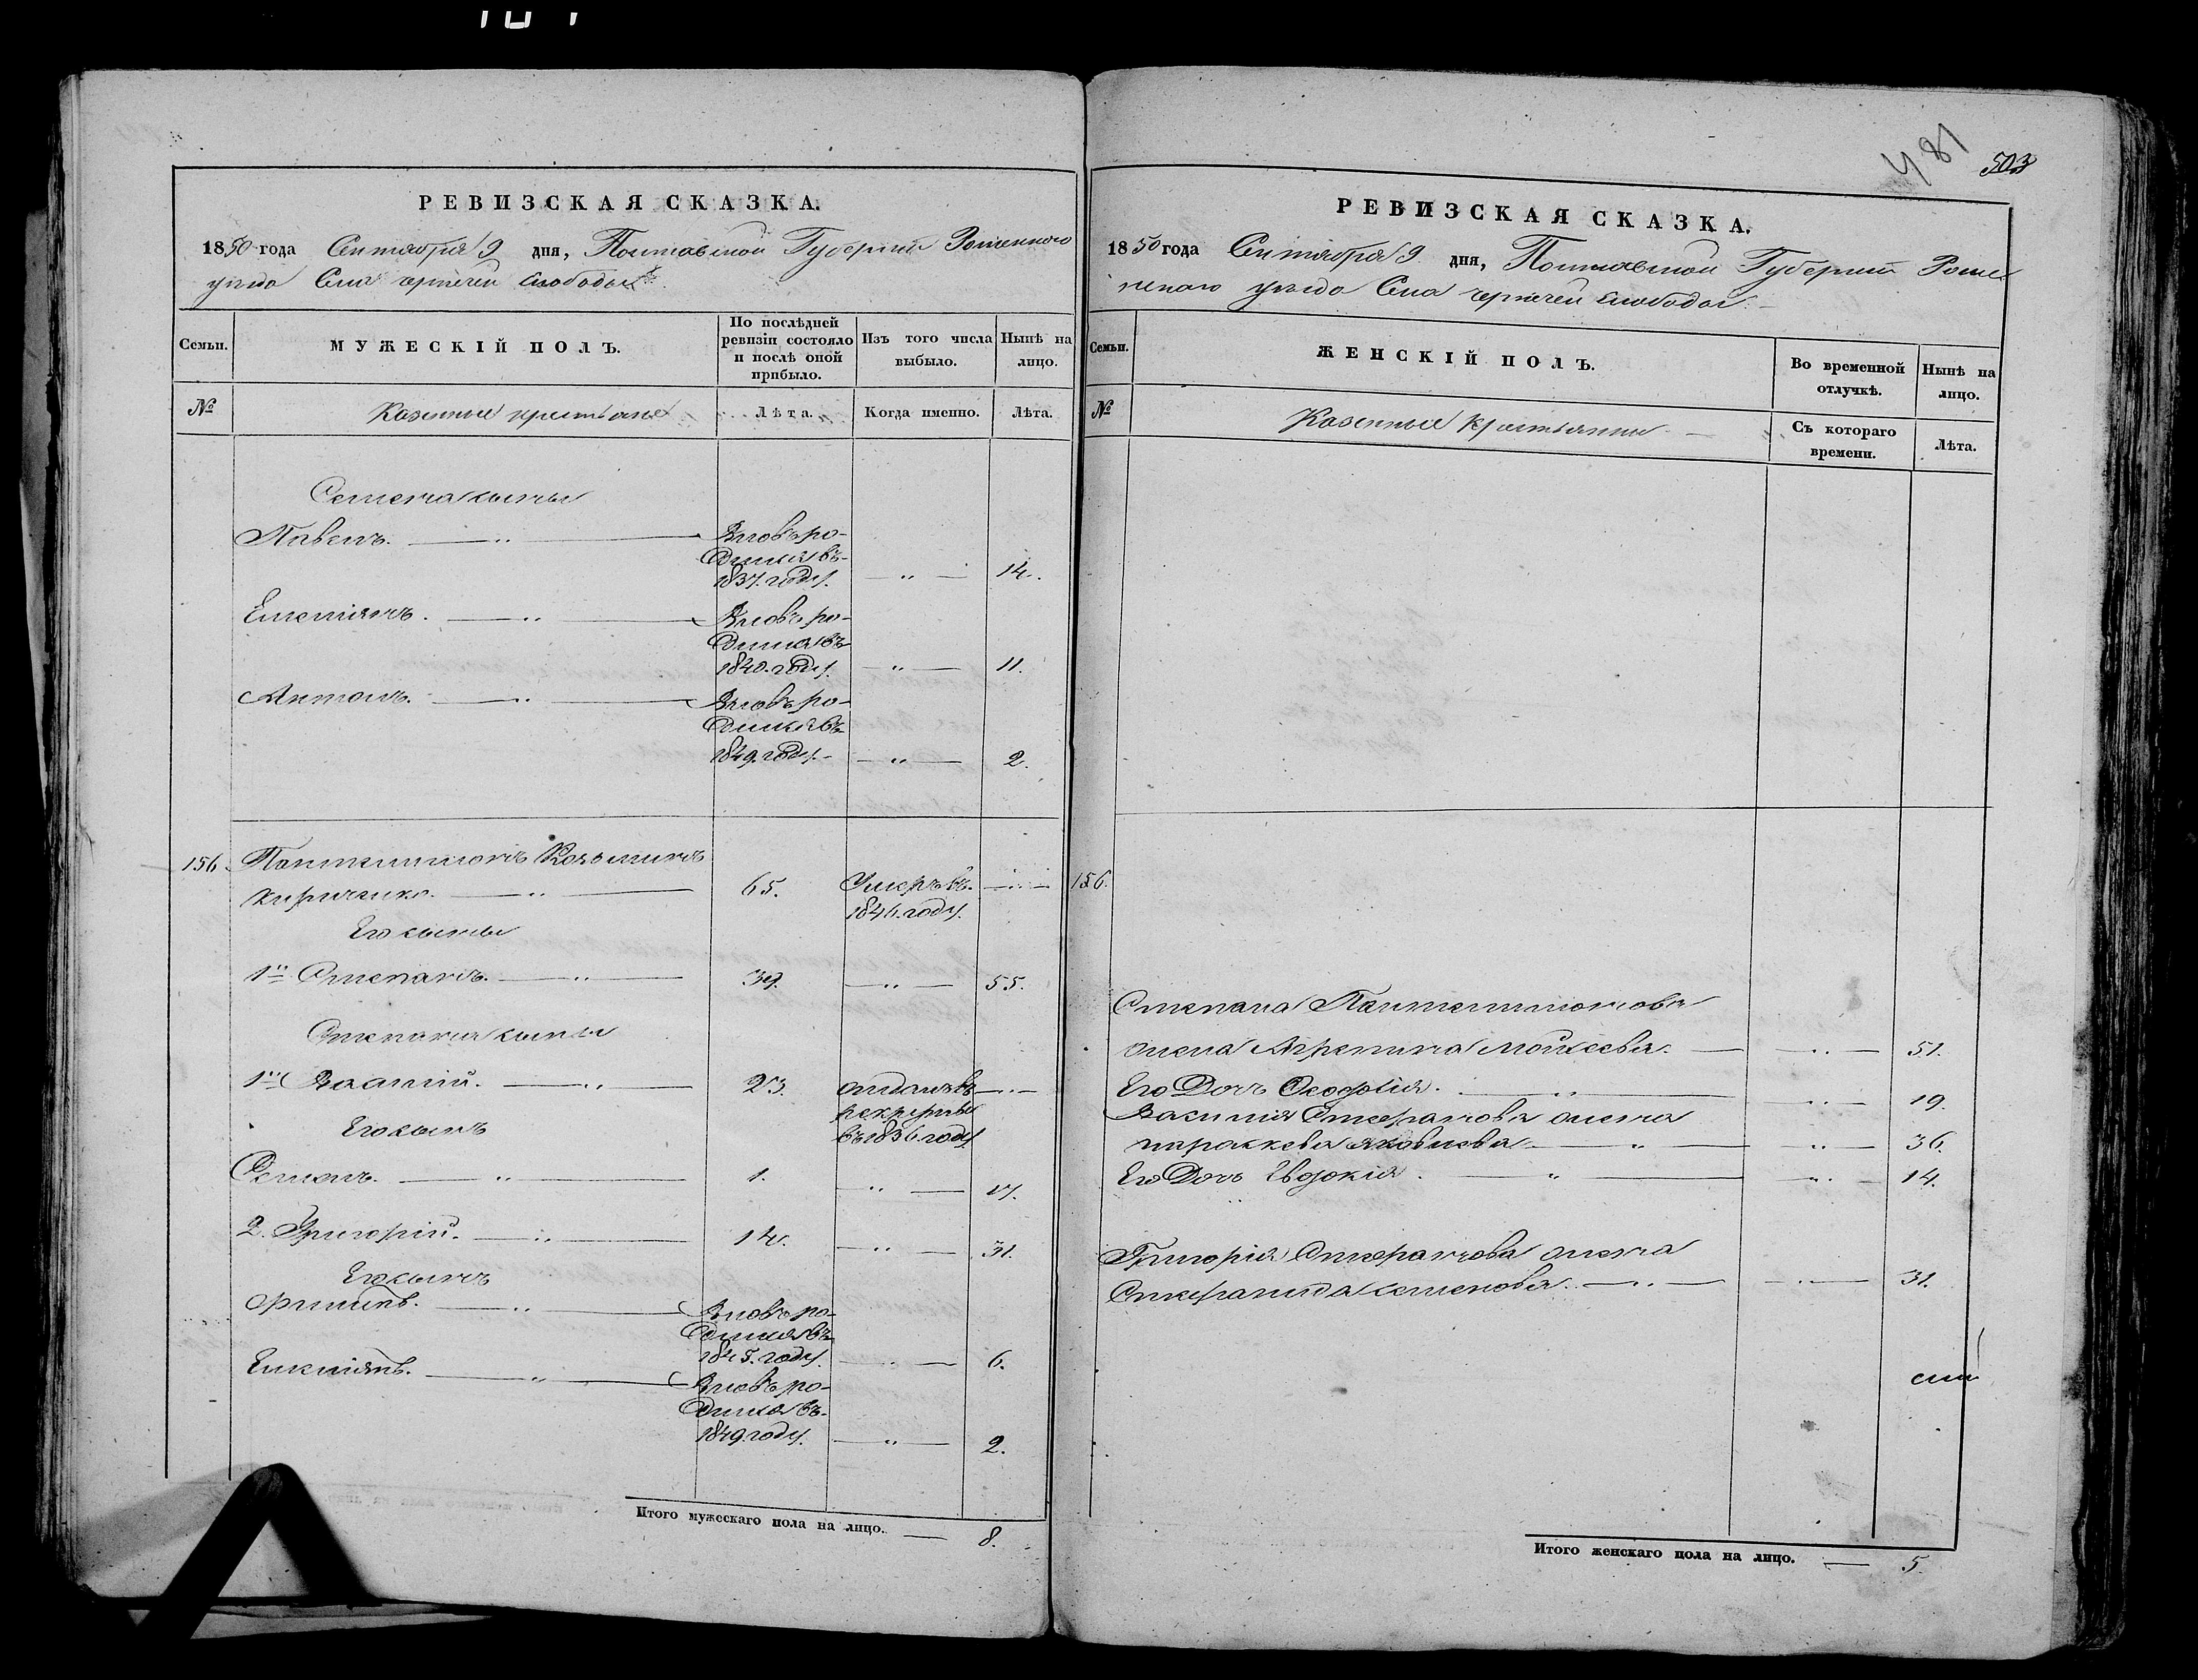 РЕВИЗСКАЯ СКАЗКА.
1850 года Сентября 9 дня, Полтавской Губернии Роменского
уезда Села чернечей слободы
Семьи.
МУЖЕСКІЙ ПОЛЪ.
По послѣдней
ревизіи состояло
и послѣ оной
прибыло.
Изъ того числа
выбыло.
Нынѣ на
лицо.
№
Казенные крестьяне
Лѣта.
Когда именно.
Лѣта.
Семена сыны
Павелъ. Вновь ро-
дился въ
1837. году. 14.
Емельянъ. Вновь ро-
дился въ
1840. году. 11.
Антонъ. Вновь ро-
дился въ
1849. году. 2.
156. Пантелимонъ Козьминъ
Кириченко. 65. Умеръ въ
1846. году.
Его сыны
1й Степанъ. 39. 55.
Степана сыны
1й Василій. 23. отданъ въ
рекруты
въ 1836 году
Его сынъ
Семенъ. 1. 17.
2. Григорій. 14. 31.
Его сынъ
Филипъ. Вновь ро-
дился въ
1845. году. 6.
Емельянъ. Вновь ро-
дился въ
1849. году. 2.
Итого мужескаго пола на лицо. 8.
481
503
РЕВИЗСКАЯ СКАЗКА.
1850 года Сентября 9 дня, Полтавской Губернии Роме
нского уезда Села чернечей слободы
Семьи.
ЖЕНСКІЙ ПОЛЪ.
Во временной
отлучкѣ.
Нынѣ на
лицо.
№
Казенные крестьянки
Съ котораго
времени.
Лѣта.
156.
Степана Пантелимонова
жена Агрепина Мойсеева. 51.
Его Дочь Феодосія. 19.
Василія Степанова жена
параскева яковлева 36.
Его Дочь Евдокія. 14.
Григорія Степанова жена
Степанида семенова. 31.
Итого женскаго пола на лицо. 5.